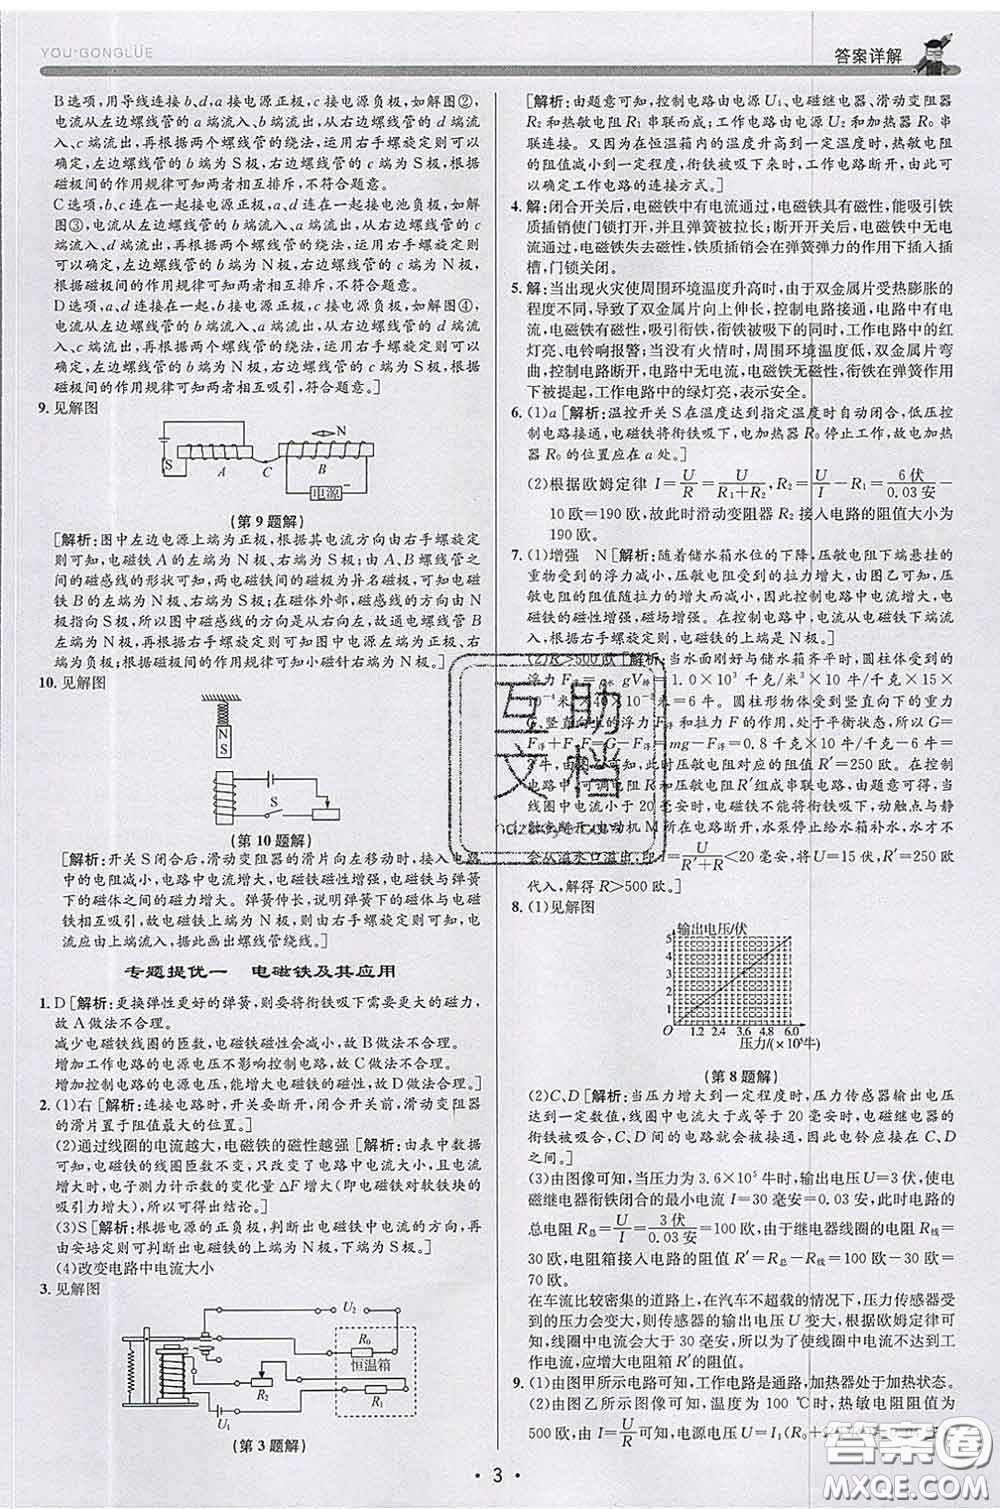 YOU·GONGLÜE
答案详解
B选项,用导线连接b、d,a接电源正极,c接电源负极,如解图②,
电流从左边螺线管的a端流入、b端流出,从右边螺线管的d端流
入、c端流出,再根据两个螺线管的绕法,运用右手螺旋定则可以
确定,左边螺线管的b端为S极,右边螺线管的c端为S极,根据
磁极间的作用规律可知两者相互排斥,不符合题意。
C选项,b、c连在一起接电源正极,a、d连在一起接电池负极,如解
图③,电流从左边螺线管的b端流入、a端流出,从右边螺线管的c
端流入、d端流出,再根据两个螺线管的绕法,运用右手螺旋定则
可以确定,左边螺线管的b端为N极,右边螺线管的c端为N极,
根据磁极间的作用规律可知两者相互排斥,不符合题意。
D选项,a、d连接在一起,b接电源正极,c接电源负极,如解图④,
电流从左边螺线管的b端流入、a端流出,从右边螺线管的d端流
入、c端流出,再根据两个螺线管的绕法,运用右手螺旋定则可以
确定,左边螺线管的b端为N极,右边螺线管的c端为S极,根据
磁极间的作用规律可知两者相互吸引,符合题意。]
9. 见解图
S A C B N
+ 电源 −
(第9题解)
[解析:图中左边电源上端为正极,根据其电流方向由右手螺旋定
则可知,电磁铁A的左端为N极、右端为S极;由A、B螺线管之
间的磁感线的形状可知,两电磁铁间的磁极为异名磁极,可知电磁
铁B的左端为N极、右端为S极;在磁体外部,磁感线的方向由N
极指向S极,所以图中磁感线的方向是从右向左,故通电螺线管B
左端为N极,再根据右手螺旋定则可知图中电源左端为正极、右端
为负极,根据磁极间的作用规律可知小磁针右端为N极。]
10. 见解图
N
S
S
(第10题解)
[解析:开关S闭合后,滑动变阻器的滑片向左移动时,接入电路
中的电阻变小,电路中电流增大,电磁铁磁性增强,电磁铁与弹簧
下的磁体之间的磁力增大。弹簧伸长,说明弹簧下的磁体与电磁铁
相互吸引,故电磁铁上端为N极,则由右手螺旋定则可知,电
流应由上端流入,据此画出螺线管绕线。]
专题提优一 电磁铁及其应用
1. D [解析:更换弹性更好的弹簧,将衔铁吸下需要更大的磁力,
故A做法不合理。
减少电磁铁线圈的匝数,电磁铁磁性会减小,故B做法不合理。
增加工作电路的电源电压不影响控制电路,故C做法不合理。
增加控制电路的电源电压,能增大电磁铁的磁性,故D做法合理。]
2. (1)右 [解析:连接电路时,开关要断开,闭合开关前,滑动变阻器
的滑片置于阻值最大的位置。]
(2)通过线圈的电流越大,电磁铁的磁性越强 [解析:由表中数据
可知,电磁铁线圈匝数不变,只改变了电路中电流大小,且电流增
大时,电子测力计示数的变化量ΔF增大(即电磁铁对软铁块的
吸引力增大),所以可得出结论。]
(3)S [解析:根据电源的正负极,判断出电磁铁中电流的方向,再
由安培定则可判断出电磁铁的上端(a端)为S极。]
(4)改变电路中电流大小
3. 见解图
U₂
R₀
恒温箱
R₂
R₁
U₁
(第3题解)
[解析:由题意可知,控制电路由电源U₁、电磁继电器、滑动变阻器
R₂和热敏电阻R₁串联而成;工作电路由电源U₂和加热器R₀串
联连接。又因为在恒温箱内的温度升高到一定温度时,热敏电阻
的阻值减小到一定程度,衔铁被吸下来时,工作电路断开,由此可
以确定工作电路的连接方式。]
4. 解:闭合开关后,电磁铁中有电流通过,电磁铁具有磁性,能吸引铁
质插销使门锁打开,并且弹簧被拉长;断开开关,电磁铁中无电流
通过,电磁铁失去磁性,铁质插销会在弹簧弹力的作用下插入插
槽,门锁关闭。
5. 解:当出现火灾使周围环境温度升高时,由于双金属片受热膨胀的
程度不同,导致了双金属片向上伸长,控制电路接通,电路中有电
流,电磁铁有磁性,吸引衔铁,衔铁被吸下的同时,工作电路中的红
灯亮、电铃响报警;当没有火情时,周围环境温度低,双金属片弯
曲,控制电路断开,电路中无电流,电磁铁无磁性,衔铁在弹簧作用
下被提起,工作电路中的绿灯亮,表示安全。
6. (1)a [解析:温控开关S在温度达到指定温度时自动闭合,低压控
制电路接通,电磁铁将衔铁吸下,电热器R₀停止工作,故电加
热器R₀的位置应在a处。]
(2)根据欧姆定律I=U/R=U/(R₁+R₂),R₂=U/I−R₁=6伏/0.03安−
10欧=190欧,故此时滑动变阻器R₂接入电路的阻值大小为
190欧。
7. (1)增强 N [解析:随着储水箱水位的下降,压敏电阻下端悬挂的
重物受到的浮力减小,压敏电阻受到的拉力增大,由图乙可知,压
敏电阻的阻值随拉力的增大而减小,故控制电路中电流增大,所以
电磁铁的磁性增强。在控制电路中,电流从电磁铁下端流入,
由右手螺旋定则可知,电磁铁的上端是N极。]
(2)R>500欧 [解析:当水面刚好与储水箱齐平时,圆柱体受到的
G、竖直向上的浮力F浮和拉力F的作用,处于平衡状态,所以G=
会从溢水口溢出,即I=U/(R′+R)<20毫安,将U=15伏,R′=250欧
代入,解得R>500欧。]
8. (1)见解图
输出电压/伏
5
4
3
2
1
O 1.2 2.4 3.6 4.8 6.0
压力/(×10⁵牛)
(第8题解)
(2)C、D [解析:当压力增大到一定程度时,压力传感器输出电压
达到一定数值,线圈中电流大于或等于20毫安时,电磁继电器的
衔铁被吸入,C、D间的电路就会接通,因此电铃应接在C、D
之间。]
(3)由图像可知,当压力为3.6×10⁵牛时,输出电压U=3伏,使电
磁继电器衔铁闭合的最小电流I=30毫安=0.03安,此时电路的
总电阻R总=U/I=3伏/0.03安=100欧,由于继电器线圈的电阻R线=
30欧,电阻箱接入电路的阻值R′=R总−R线=100欧−30欧=
70欧。
在车流比较密集的道路上,在汽车不超载的情况下,压力传感器受
到的压力会变大,则传感器的输出电压U变大,根据欧姆定律可
知,线圈中电流会大于30毫安,所以为了使线圈中电流不达到
工作电流,应增大电阻箱R′的阻值。
9. (1)由图甲所示电路可知,工作电路是通路,加热器处于加热状态。
(2)由图乙所示图像可知,温度为100℃时,热敏电阻阻值为
500欧,由I=U/R可知,电源电压U=I₁(R₀+
互助文档
答案圈
MXQE.COM
· 3 ·